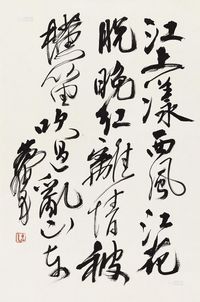 江上漾西風江花
脱晚红離情被
横笛吹過亂山东